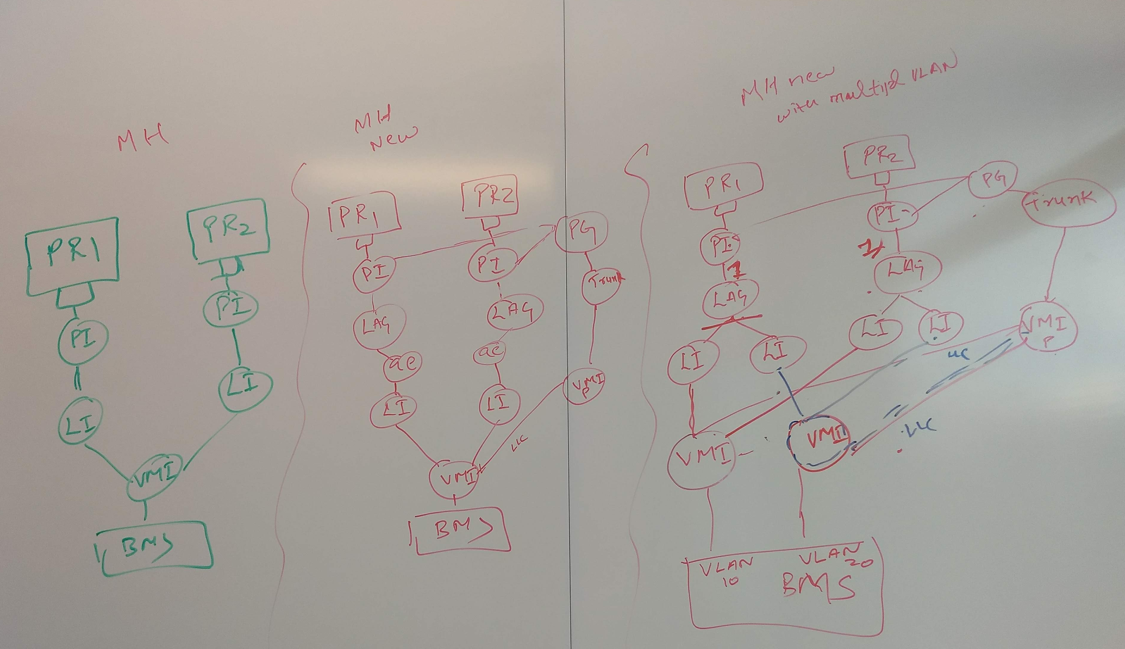 MH
PR1
PR2
PI
PI
LI
LI
VMI
BMS
MH
New
PR1
PR2
PG
PI
PI
Trunk
LAG
LAG
ae
ae
LI
LI
VMI
P
VMI
BMS
MH new
with multipl VLAN
PR1
PR2
PG
Trunk
PI
PI
1
LAG
LAG
LI
LI
LI
LI
VMI
P
VMI
VMI
VLAN
10
VLAN
20
BMS